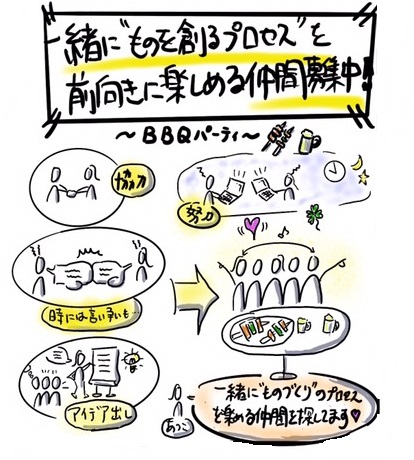 一緒に"ものを創るプロセス"を
前向きに楽しめる仲間募集中!
～BBQパーティ～
協力
努力
時には言い争いも…
アイデア出し
あつこ
一緒に"ものづくり"のプロセス
を楽める仲間を探してます